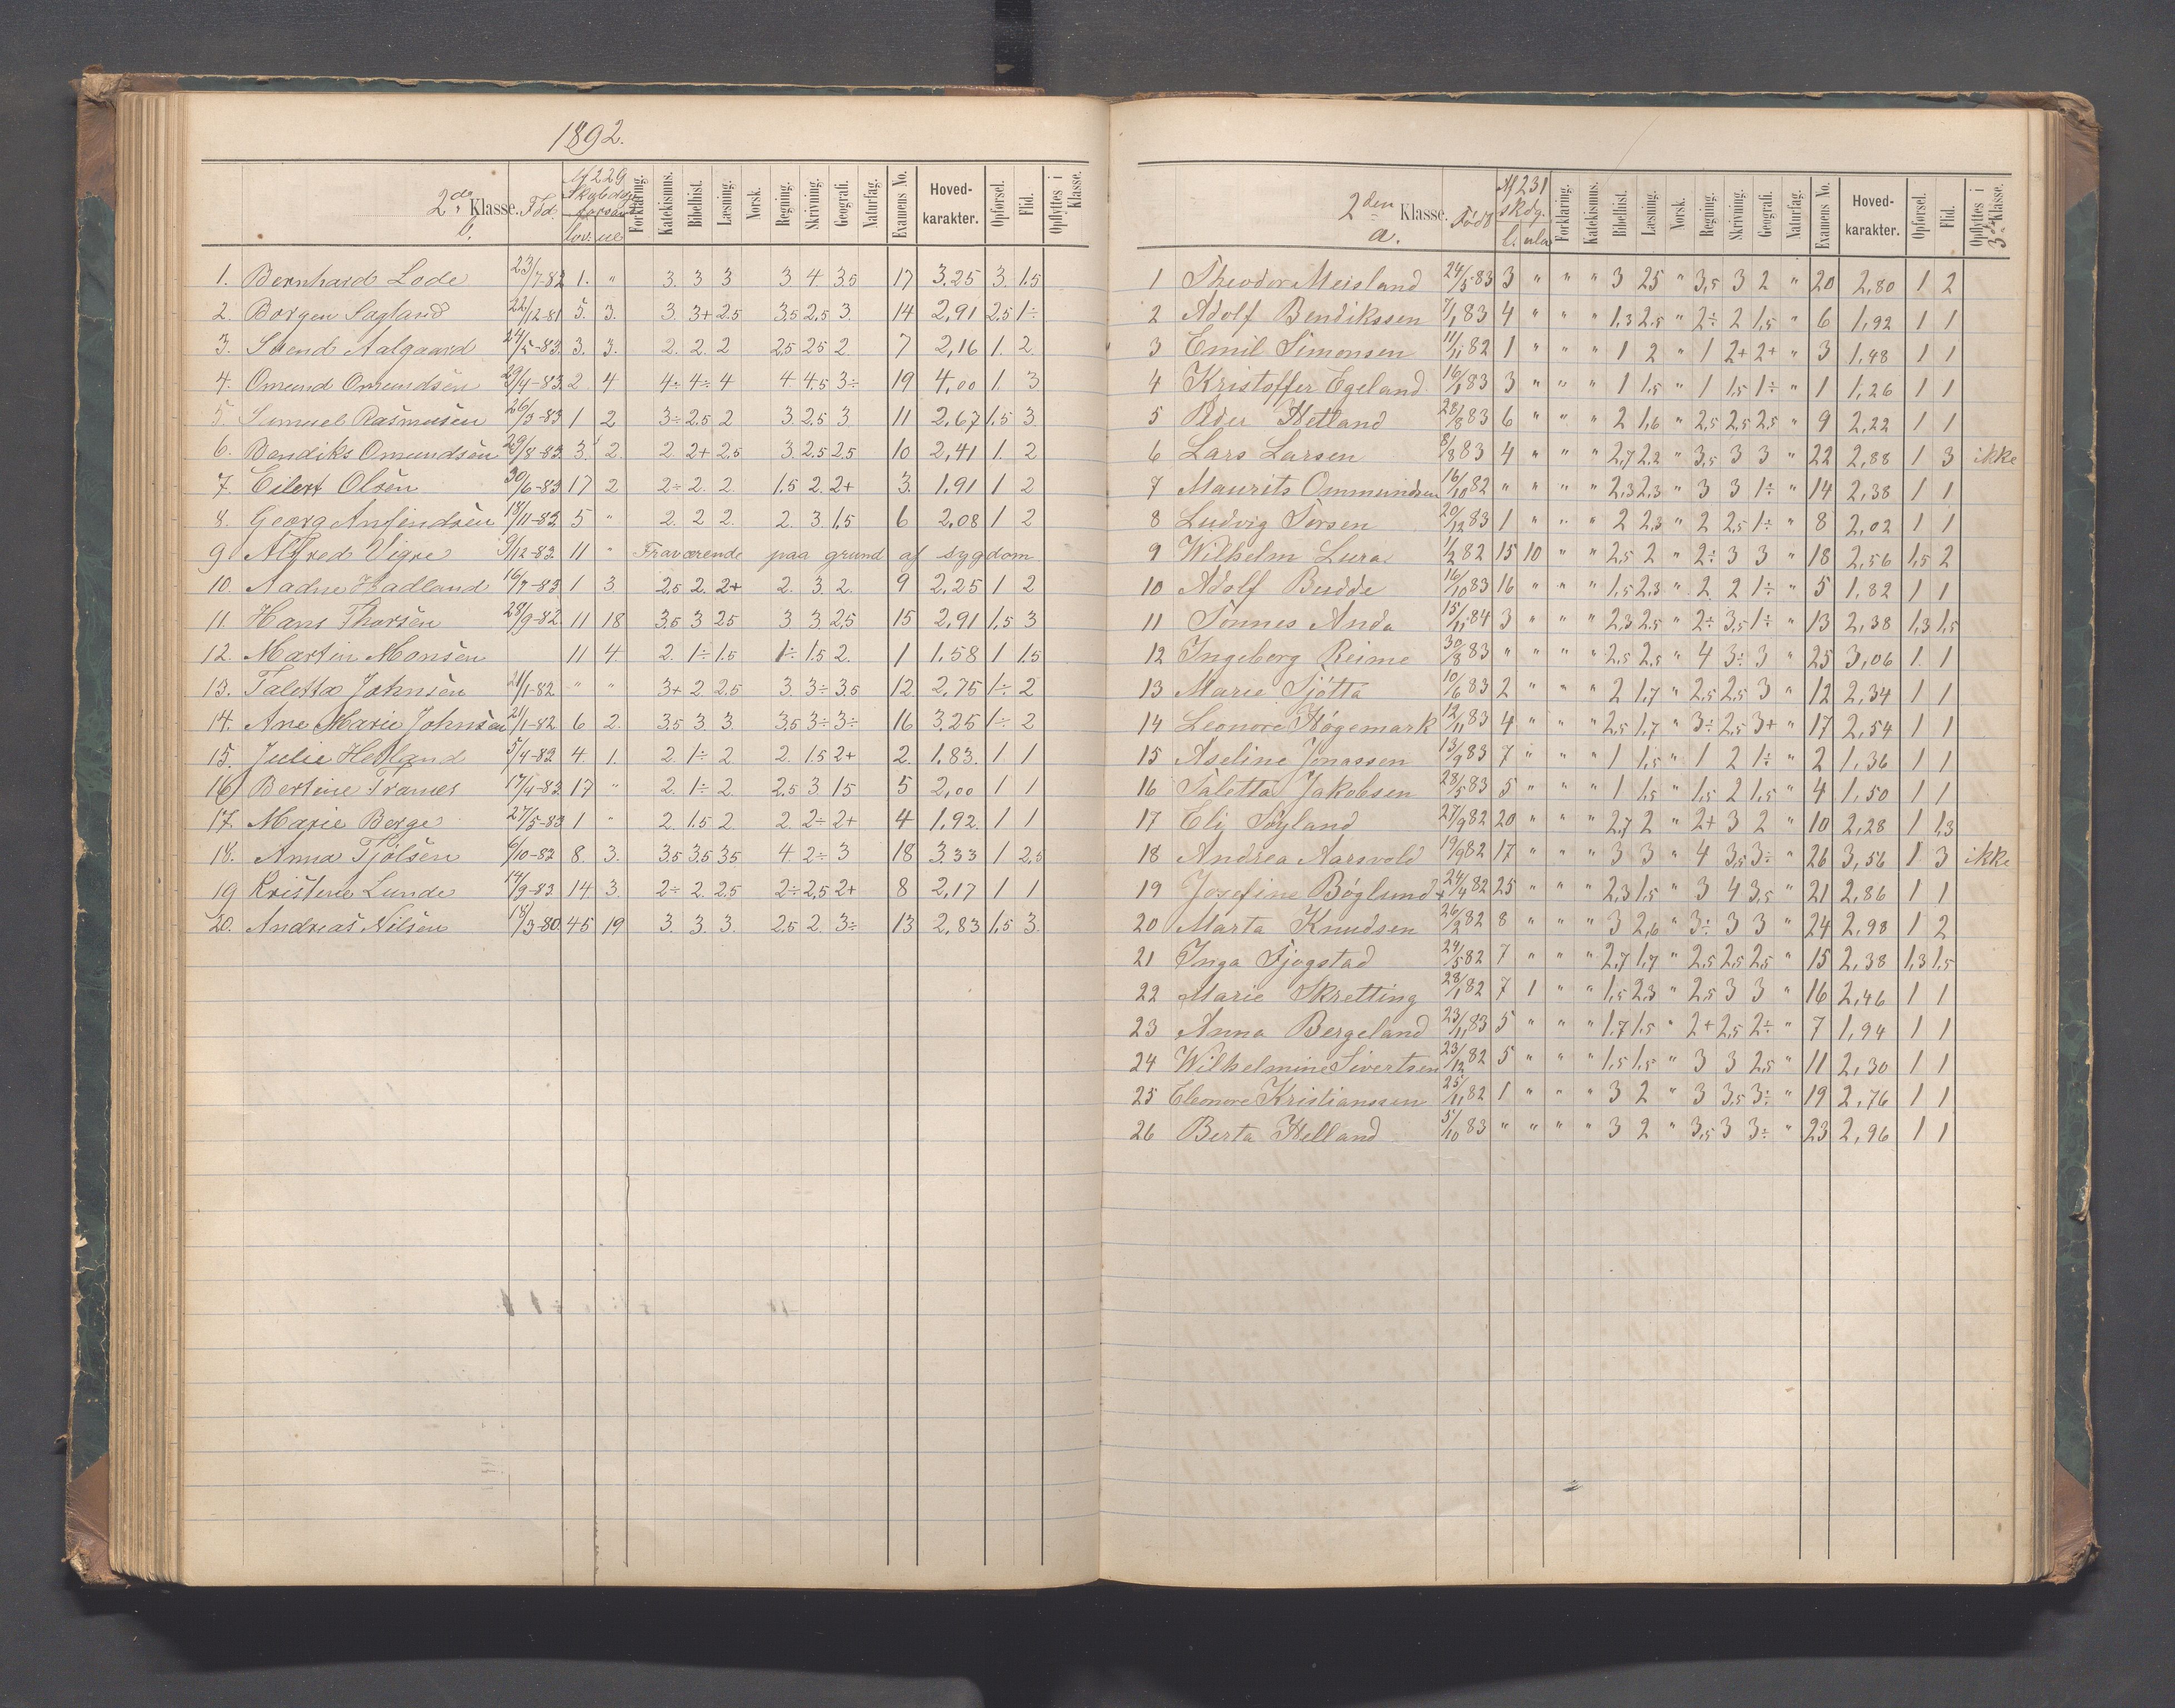 1892.
2de Klasse. Fød. Af 229 Skoledage forsømt Forklaring. Katekismus. Bibelhist. Læsning. Norsk. Regning. Skrivning. Geografi. Naturfag. Examens No. Hoved-karakter. Opførsel. Flid. Opflyttes i Klasse.
b. lov. ul
1. Bernhard Lode 23/7-82 1. " 3. 3 3 3 4 3.5 17 3,25 3. 1.5
2. Borgen Sagland 22/12-81 5. 3. 3. 3+ 2.5 3.5 2,5 3. 14 2,91 2,5 1÷
3. Svend Aalgaard 24/5-83. 3. 3. 2. 2. 2 2.5 2.5 2. 7 2,16 1. 2.
4. Omund Omundsen 29/4-83 2. 4 4÷ 4÷ 4 4. 4.5 3÷ 19 4,00 1. 3.
5. Samuel Rasmusen 26/3-83 1 2 3÷ 2.5 2 3. 2.5 3. 11 2,67 1.5 3.
6. Bendiks Omundsen 29/8-83 3. 2. 2. 2+ 2.5 3. 2.5 2.5 10 2,41 1. 2
7. Eilert Olsen 30/6-83 17 2 2÷ 2. 2. 1.5 2. 2+ 3. 1.91 1 2
8. Georg Anfindsen 18/11-82 5 " 2. 2 2. 2. 3. 1,5 6 2,08 1 2
9 Alfred Vigre 9/12-82 11 " Fraværende paa grund af sygdom
10. Aadne Hadland 16/7-83 1 3. 2.5 2. 2+ 2. 3. 2. 9 2,25 1 2
11. Hans Thorsen 28/9-82 11 18 3.5 3 2.5 3 3 2.5 15 2,91 1,5 3
12. Martin Monsen 11 4. 2. 1÷ 1.5 1÷ 1.5 2. 1 1.58 1 1.5
13. Taletta Johnsen 21/1-82 " " 3+ 2. 2.5 3. 3÷ 3.5 12 2,75 1÷ 2
14. Ane Marie Johnsen 21/1-82 6 2. 3.5 3. 3. 3.5 3÷ 3÷ 16 3.25 1÷ 2
15. Julie Helland 5/4-83 4. 1. 2. 1÷ 2. 2. 1.5 2+ 2. 1.83. 1 1
16 Bertine Tranes 17/4-83 17 " 2. 1÷ 2. 2.5 3. 1.5 5 2,00 1 1
17. Marie Berge 27/5-83 1 " 2. 1.5 2. 2. 2÷ 2+ 4 1.92. 1 1
18. Anna Tjølsen 6/10-82 8. 3. 3.5 3.5 3.5 4. 2÷ 3 18 3.33 1 2,5
19 Kristene Lunde 14/9-83 14. 3. 2÷ 2. 2.5 2÷ 2,5 2+ 8 2,17 1 1
20. Andreas Nilsen 14/3-80. 45 19 3. 3. 3. 2.5 2. 3÷ 13 2,83 1,5 3.
2den Klasse. Født Af 231 skdg. Forklaring. Katekismus. Bibelhist. Læsning. Norsk. Regning. Skrivning. Geografi. Naturfag. Examens No. Hoved-karakter. Opførsel. Flid. Opflyttes i 3die Klasse.
a. l. ulo
1 Theodor Meisland 24/5 83 3 " " " 3 25 " 3,5 3 2 " 20 2,80 1 2
2 Adolf Bendikssen 7/1 83 4 " " " 1,3 2,5 " 2÷ 2 1,5 " 6 1,92 1 1
3 Emil Simonsen 11/11 82 1 " " " 1 2 " 1 2+ 2+ " 3 1,48 1 1
4 Kristoffer Egeland 16/1 83 3 " " " 1 1,5 " 1 1,5 1÷ " 1 1,26 1 1
5 Peder Hetland 28/8 83 6 " " " 2 1,6 " 2,5 2,5 2,5 " 9 2,22 1 1
6 Lars Larsen 8/8 83 4 " " " 2,7 2,2 " 3,5 3 3 " 22 2,88 1 3 ikke
7 Maurits Ommundsen 16/10 82 " " " " 2,3 2,3 " 3 3 1÷ " 14 2,38 1 1
8 Ludvig Torsen 20/12 83 1 " " " 2 2,3 " 2 2,5 1÷ " 8 2,02 1 1
9 Wilhelm Lura 1/2 82 15 10 " " 2,5 2 " 2÷ 3 3 " 18 2,56 1,5 2
10 Adolf Budde 16/10 83 16 " " " 1,5 2,3 " 2 2 1÷ " 5 1,82 1 1
11 Tønnes Anda 15/11 84 3 " " " 2,3 2,5 " 2÷ 3,5 1÷ " 13 2,38 1,3 1,5
12 Ingeborg Reime 30/8 83 " " " " 2,5 2,5 " 4 3÷ 3 " 25 3,06 1 1
13 Marie Sjøtta 10/6 83 2 " " " 2 1,7 " 2,5 2,5 3 " 12 2,34 1 1
14 Leonore Høgemark 12/11 83 4 " " " 2,5 1,7 " 3÷ 2,5 3+ " 17 2,54 1 1
15 Aseline Jonassen 13/9 83 7 " " " 1 1,5 " 1 2 1÷ " 2 1,36 1 1
16 Taletta Jakobsen 28/5 83 5 " " " 1 1,5 " 1,5 2 1,5 " 4 1,50 1 1
17 Eli Søyland 27/9 82 20 " " " 2,7 2 " 2+ 3 2 " 10 2,28 1 1,3
18 Andrea Aarsvold 19/9 82 17 " " " 3 3 " 4 3,5 3÷ " 26 3,56 1 3 ikke
19 Josefine Bøglund 24/4 82 25 " " " 2,3 1,5 " 3 4 3,5 " 21 2,86 1 1
20 Marta Knudsen 26/2 82 8 " " " 3 2,6 " 3÷ 3 3 " 24 2,98 1 2
21 Inga Fjogstad 24/5 82 7 " " " 2,7 1,7 " 2,5 2,5 2,5 " 15 2,38 1,3 1,5
22 Marie Skretting 28/1 82 7 1 " " 1,5 2,3 " 2,5 3 3 " 16 2,46 1 1
23 Anna Bergeland 23/11 83 5 " " " 1,7 1,5 " 2+ 2,5 2÷ " 7 1,94 1 1
24 Wilhelmine Sivertsen 23/12 82 5 " " " 1,5 1,5 " 3 3 2,5 " 11 2,30 1 1
25 Eleonore Kristianssen 25/11 82 1 " " " 3 2 " 3 3,5 3÷ " 19 2,76 1 1
26 Berta Helland 5/10 83 " " " " 3 2 " 3,5 3 3÷ " 23 2,96 1 1